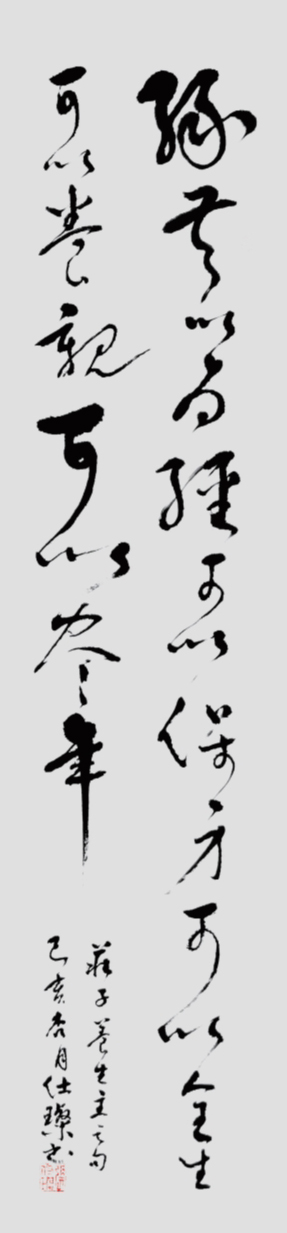 缘督以为经可以保身可以全生
可以养亲可以尽年
庄子养生主之句
己亥杏月仕璨书